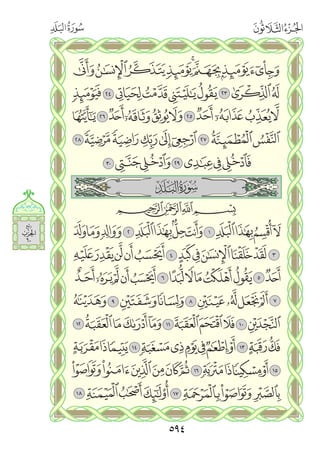 الجُزْءُ الثَّلَاثُونَ
سُورَةُ البَلَدِ
وَجِاْىٓءَ يَوْمَئِذٍۭ بِجَهَنَّمَۚ يَوْمَئِذٍ يَتَذَكَّرُ ٱلْإِنسَٰنُ وَأَنَّىٰ
لَهُ ٱلذِّكْرَىٰ ٢٣ يَقُولُ يَٰلَيْتَنِى قَدَّمْتُ لِحَيَاتِى ٢٤ فَيَوْمَئِذٍ
لَّا يُعَذِّبُ عَذَابَهُۥٓ أَحَدٌ ٢٥ وَلَا يُوثِقُ وَثَاقَهُۥٓ أَحَدٌ ٢٦ يَٰٓأَيَّتُهَا
ٱلنَّفْسُ ٱلْمُطْمَئِنَّةُ ٢٧ ٱرْجِعِىٓ إِلَىٰ رَبِّكِ رَاضِيَةً مَّرْضِيَّةً ٢٨
فَٱدْخُلِى فِى عِبَٰدِى ٢٩ وَٱدْخُلِى جَنَّتِى ٣٠
سُورَةُ البَلَدِ
بِسْمِ ٱللَّهِ ٱلرَّحْمَٰنِ ٱلرَّحِيمِ
لَآ أُقْسِمُ بِهَٰذَا ٱلْبَلَدِ ١ وَأَنتَ حِلٌّۢ بِهَٰذَا ٱلْبَلَدِ ٢ وَوَالِدٍ وَمَا وَلَدَ
٣ لَقَدْ خَلَقْنَا ٱلْإِنسَٰنَ فِى كَبَدٍ ٤ أَيَحْسَبُ أَن لَّن يَقْدِرَ عَلَيْهِ
أَحَدٌ ٥ يَقُولُ أَهْلَكْتُ مَالًا لُّبَدًا ٦ أَيَحْسَبُ أَن لَّمْ يَرَهُۥٓ أَحَدٌ
٧ أَلَمْ نَجْعَل لَّهُۥ عَيْنَيْنِ ٨ وَلِسَانًا وَشَفَتَيْنِ ٩ وَهَدَيْنَٰهُ
ٱلنَّجْدَيْنِ ١٠ فَلَا ٱقْتَحَمَ ٱلْعَقَبَةَ ١١ وَمَآ أَدْرَىٰكَ مَا ٱلْعَقَبَةُ ١٢
فَكُّ رَقَبَةٍ ١٣ أَوْ إِطْعَٰمٌ فِى يَوْمٍ ذِى مَسْغَبَةٍ ١٤ يَتِيمًا ذَا مَقْرَبَةٍ
١٥ أَوْ مِسْكِينًا ذَا مَتْرَبَةٍ ١٦ ثُمَّ كَانَ مِنَ ٱلَّذِينَ ءَامَنُواْ وَتَوَاصَوْاْ
بِٱلصَّبْرِ وَتَوَاصَوْاْ بِٱلْمَرْحَمَةِ ١٧ أُوْلَٰٓئِكَ أَصْحَٰبُ ٱلْمَيْمَنَةِ ١٨
٥٩٤